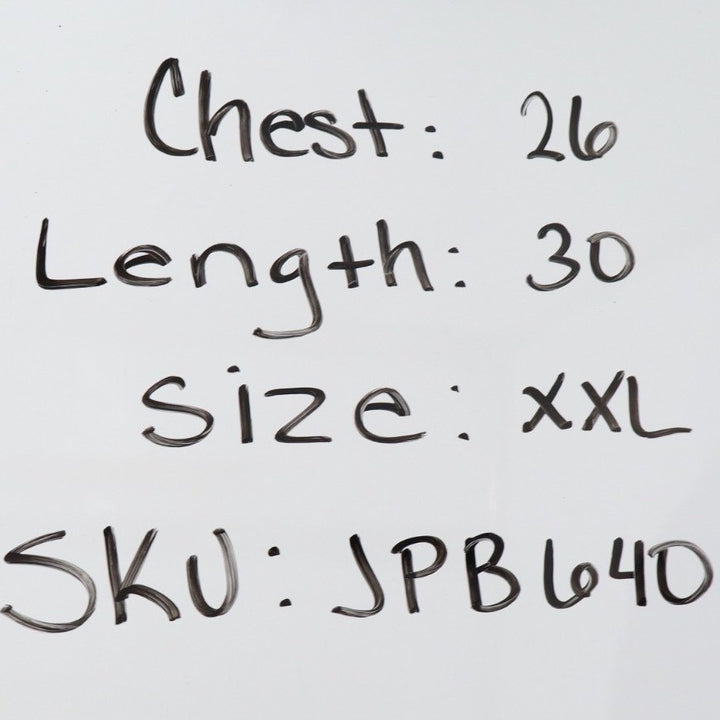 Chest: 26
Length: 30
Size: XXL
SKU: JPB640